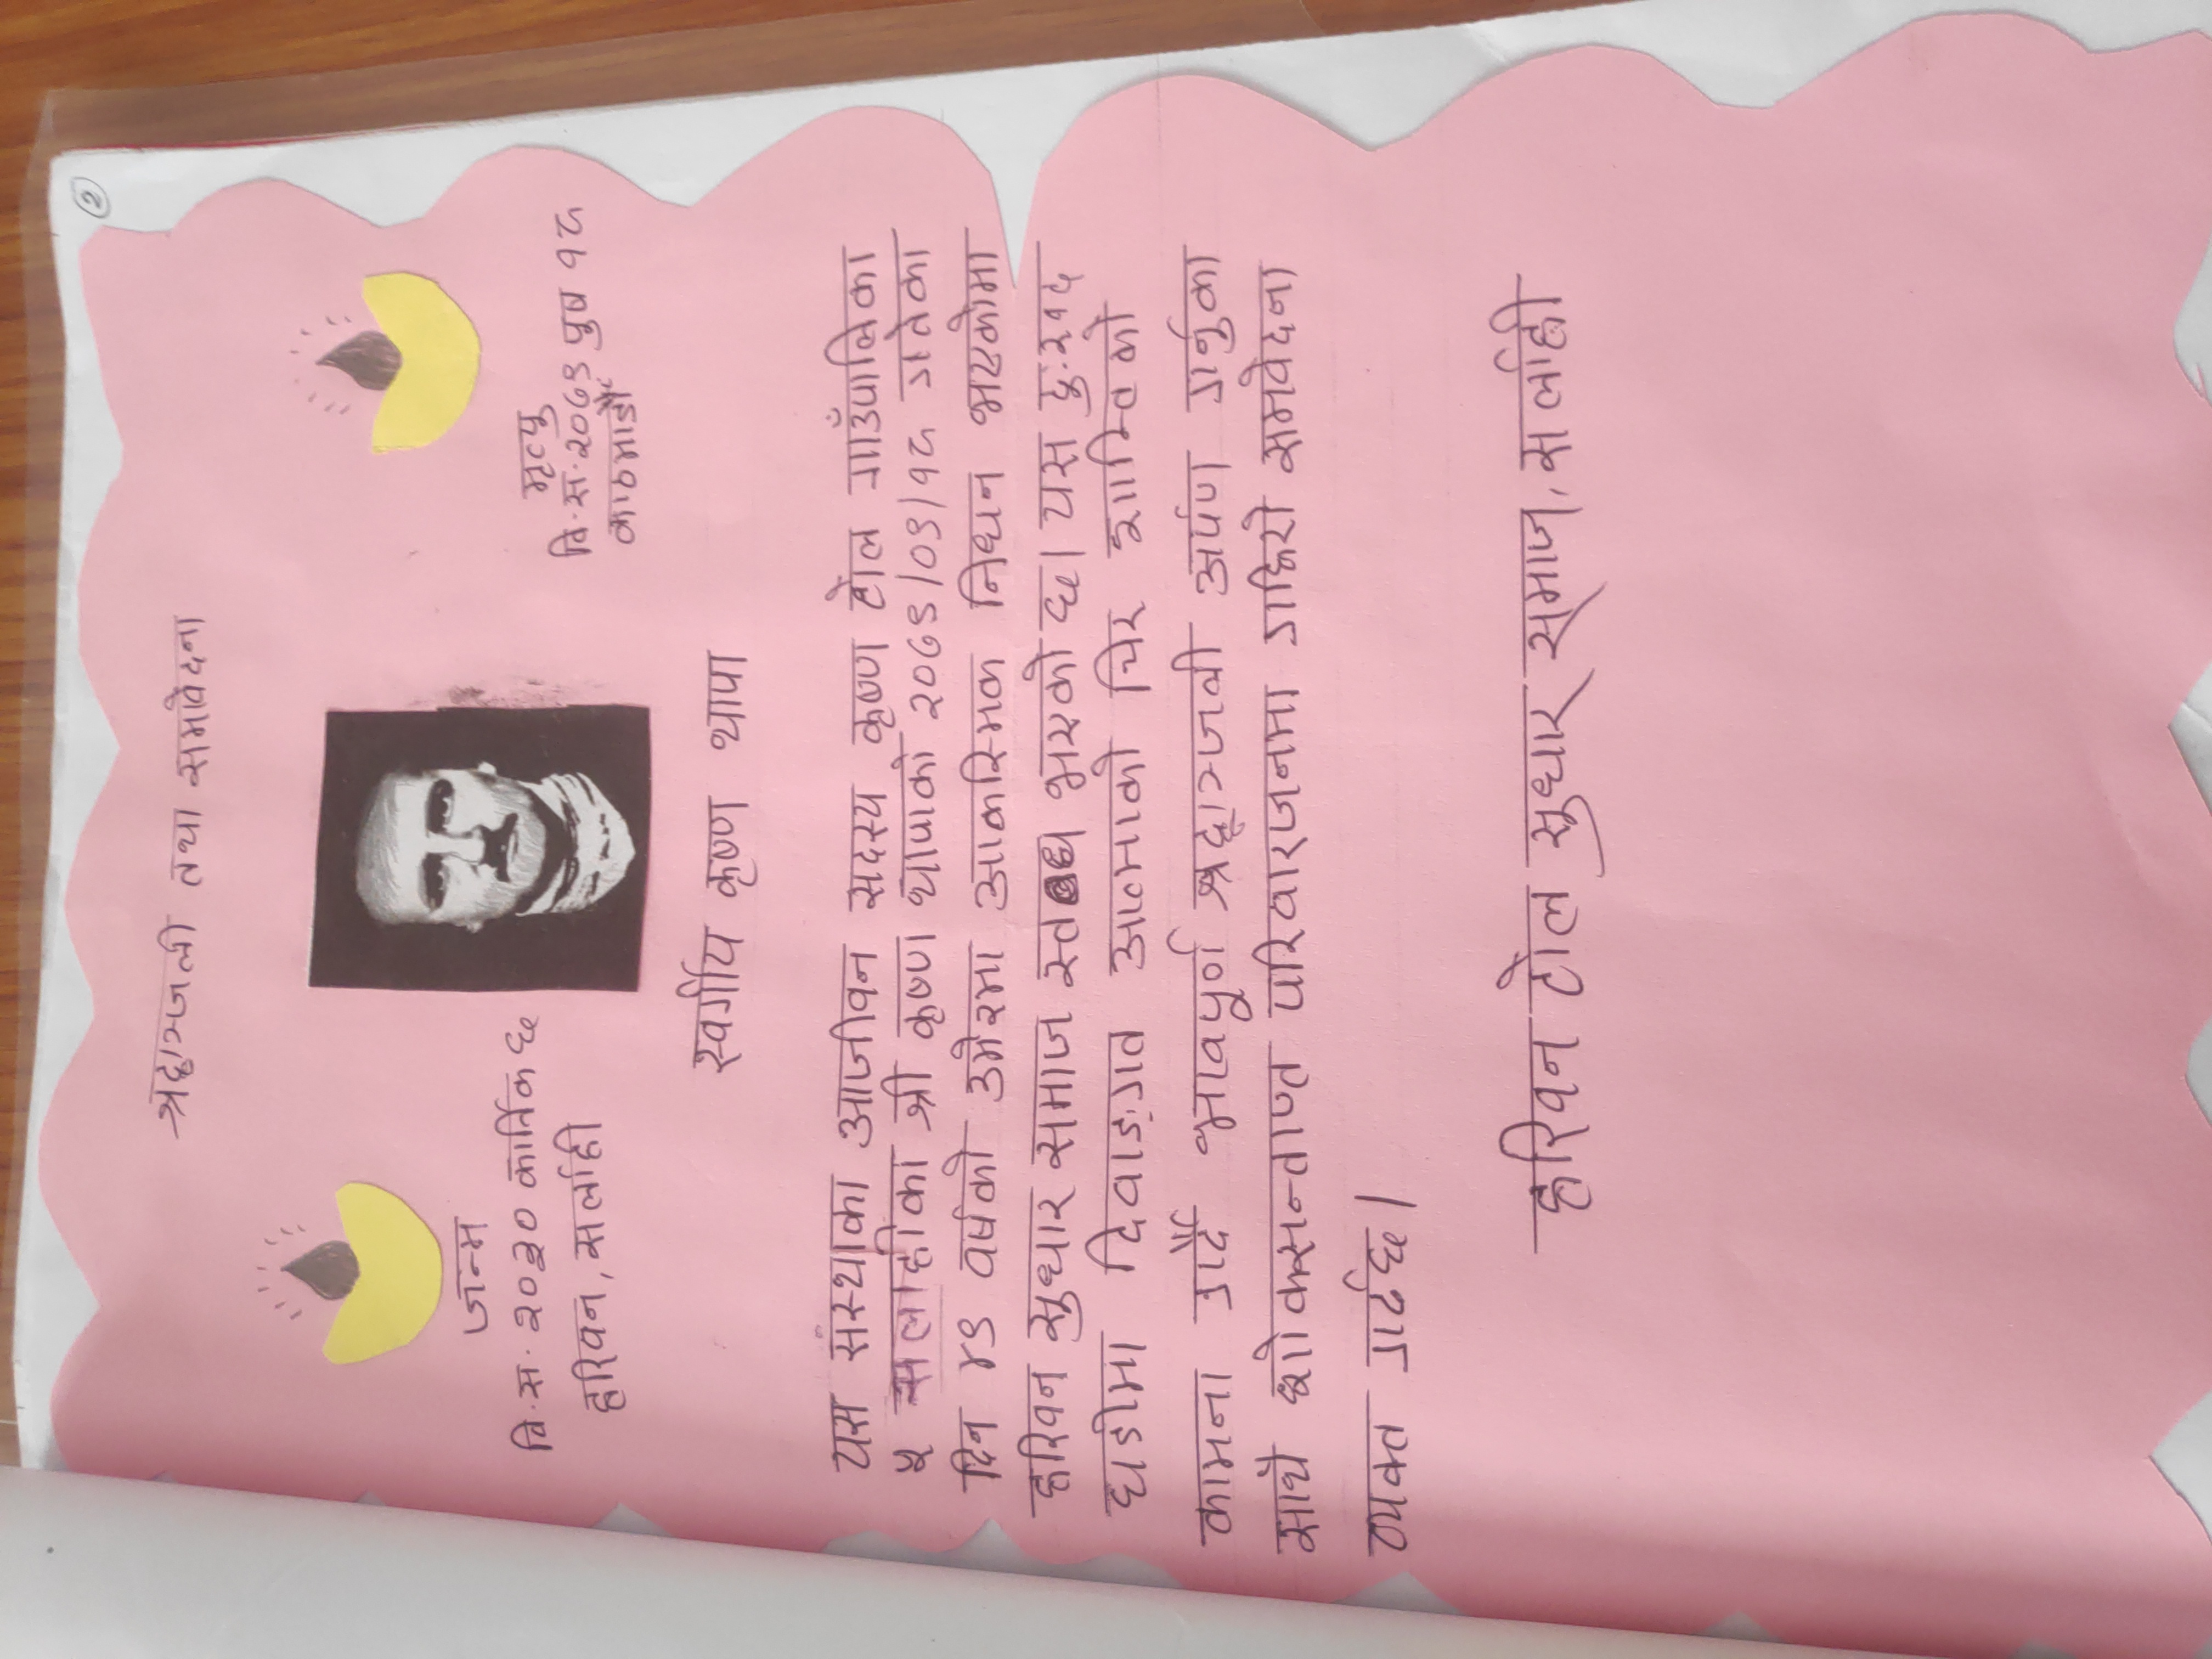 ②
श्रद्धाञ्जली तथा समावेदना
जन्म
वि.स. २०३० कार्तिक ६
हरिवन, सर्लाही
मृत्यु
वि.स. २०७९ पुष १८
काठमाडौँ
स्वर्गीय कृष्ण थापा
यस संस्थाका आजीवन सदस्य कृष्ण टोल गाउँपालिका
५ सलाहीका श्री कृष्ण थापाको २०७९/०९/१८ गतेका
दिन ४९ वर्षको उमेरमा आकस्मिक निधन भएकोमा
हरिवन सुधार समाज स्तब्ध भएको छ। यस दुःखद
घडीमा दिवाङ्गत आत्माको चिर शान्तिको
कामना गर्दै भावपूर्ण श्रद्धाञ्जली अर्पण गर्नुका
साथै शोकसन्ताप्त परिवारजनमा गहिरो समवेदना
व्यक्त गर्दछ।
हरिवन टोल सुधार समाज, सर्लाही